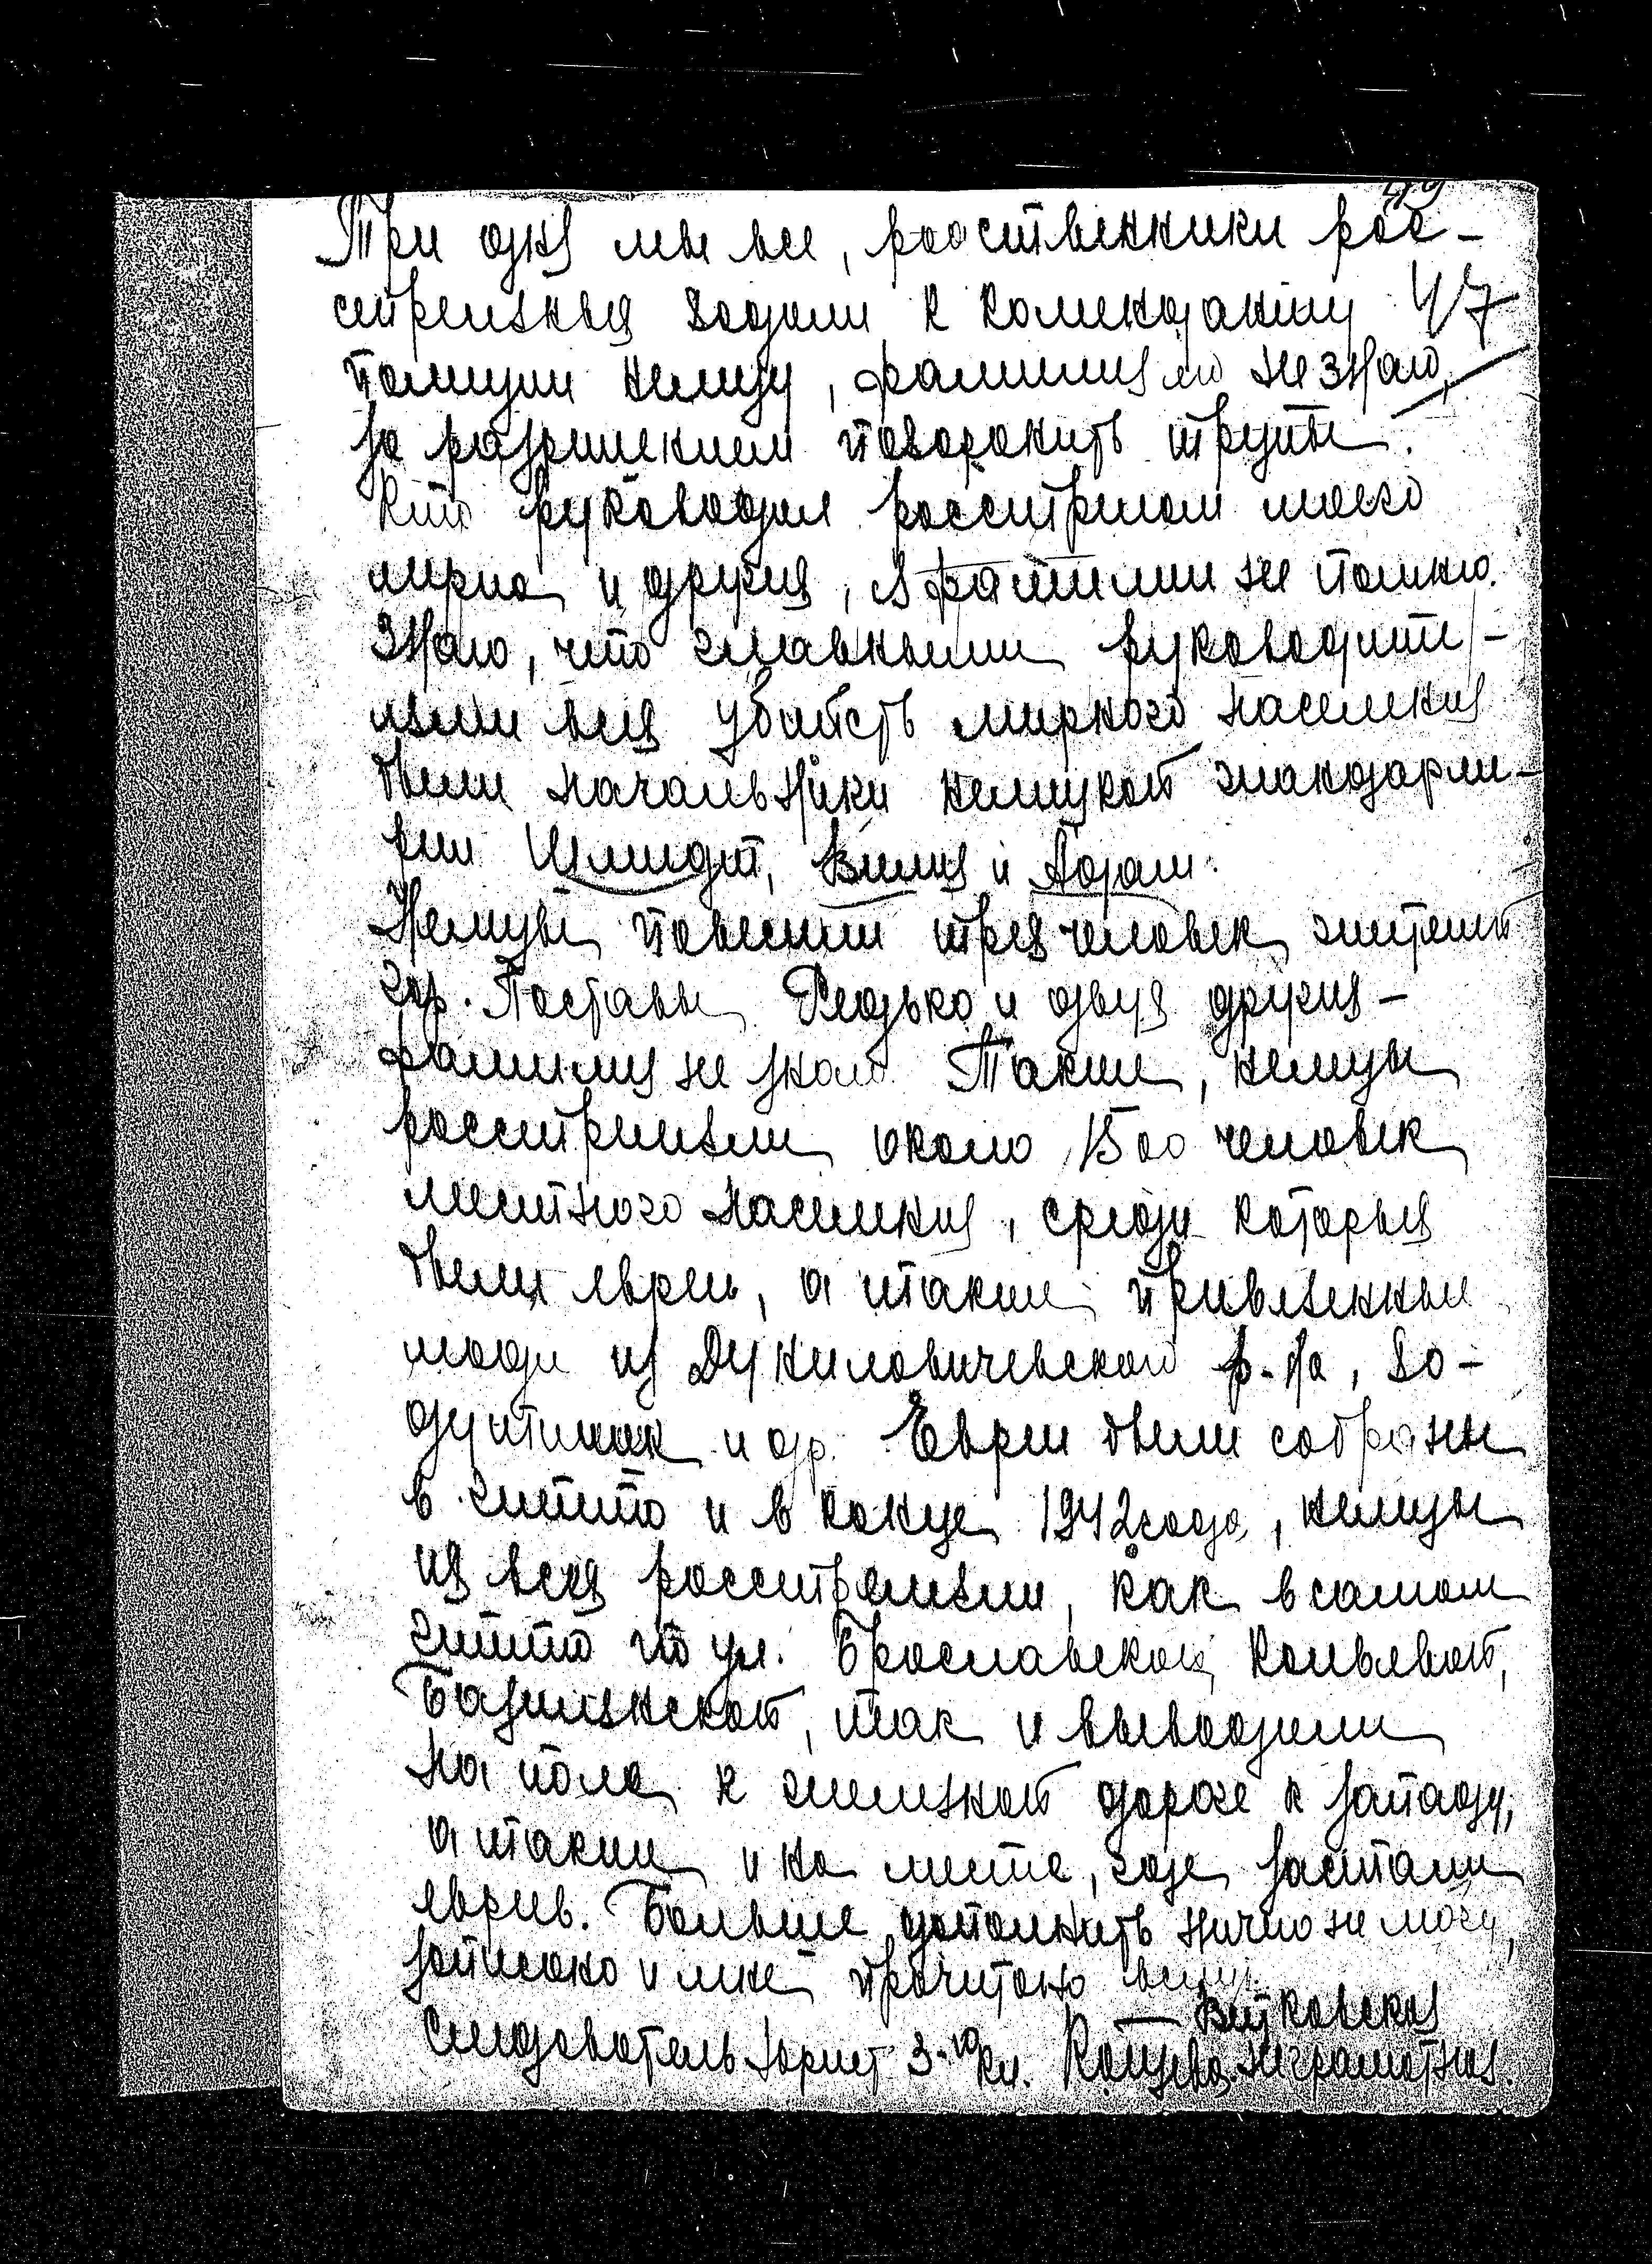 49
Три дня мы все, родственники рас-
стрелянных ходили к коменданту 47
полиции немцу, фамилия его не знаю,
за разрешением похоронить трупы.
Кто руководил расстрелом моего
мужа и других, я фамилии не помню.
Знаю, что главными руководите-
лями всех убийств мирного населения
были начальники немецкой жандарме-
рии Шмидт, Вилих и Адам.
Немцы повесили трех человек жителей
гор. Поставы Редько и двух других -
фамилия не знаю. Также, немцы
расстреляли около 1500 человек
местного населения, среди которых
были евреи, а также привезенные
люди из Дуниловичевского р-на, Во-
дутишек и др. Евреи были собраны
в гетто и в конце 1942 года, немцы
их всех расстреляли, как в самом
гетто по ул. Браславской,
Базилянской, так и выводили
на поле к железной дороге к западу,
а также и на месте, где застали
евреев. Больше дополнить ничего не могу,
записано и мне прочитано
Витковская
Следователь юрист 3-го кл. неграмотная.